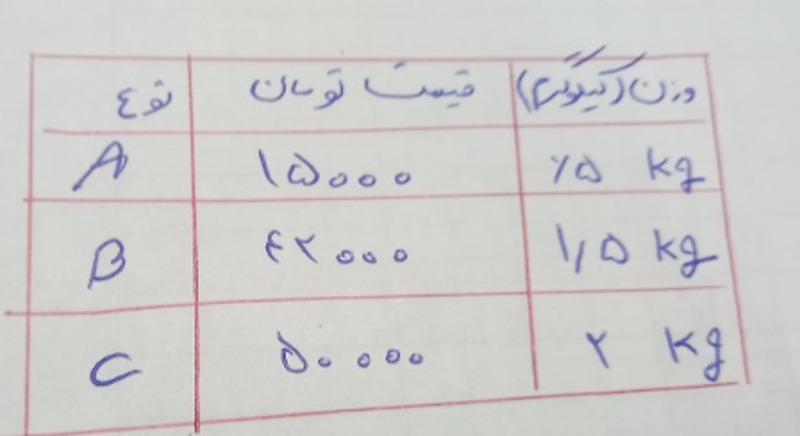 نوع قیمت تومان وزن (کیلوگرم)
A ۱۵۰۰۰ ٪۵ kg
B ۴۲۰۰۰ ۱٫۵ kg
C ۵۰۰۰۰ ۲ kg